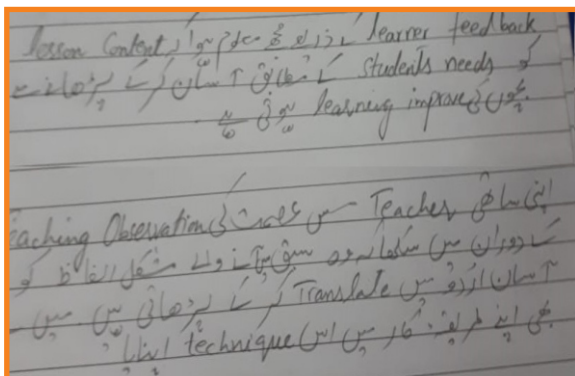 learner feedback کے ذریعے مجھے معلوم ہوا کہ lesson Content
کو students needs کے مطابق آسان کر کے پڑھانے سے
بچوں کی learning improve ہوتی ہے
اپنی ساتھی Teacher مس عصمت کی Teaching Observation
کے دوران میں سیکھا کہ وہ سبق میں آنے والے مشکل الفاظ کو
آسان اردو میں Translate کر کے پڑھاتی ہیں میں
بھی اپنے طریقہ کار میں اس technique اپنایا